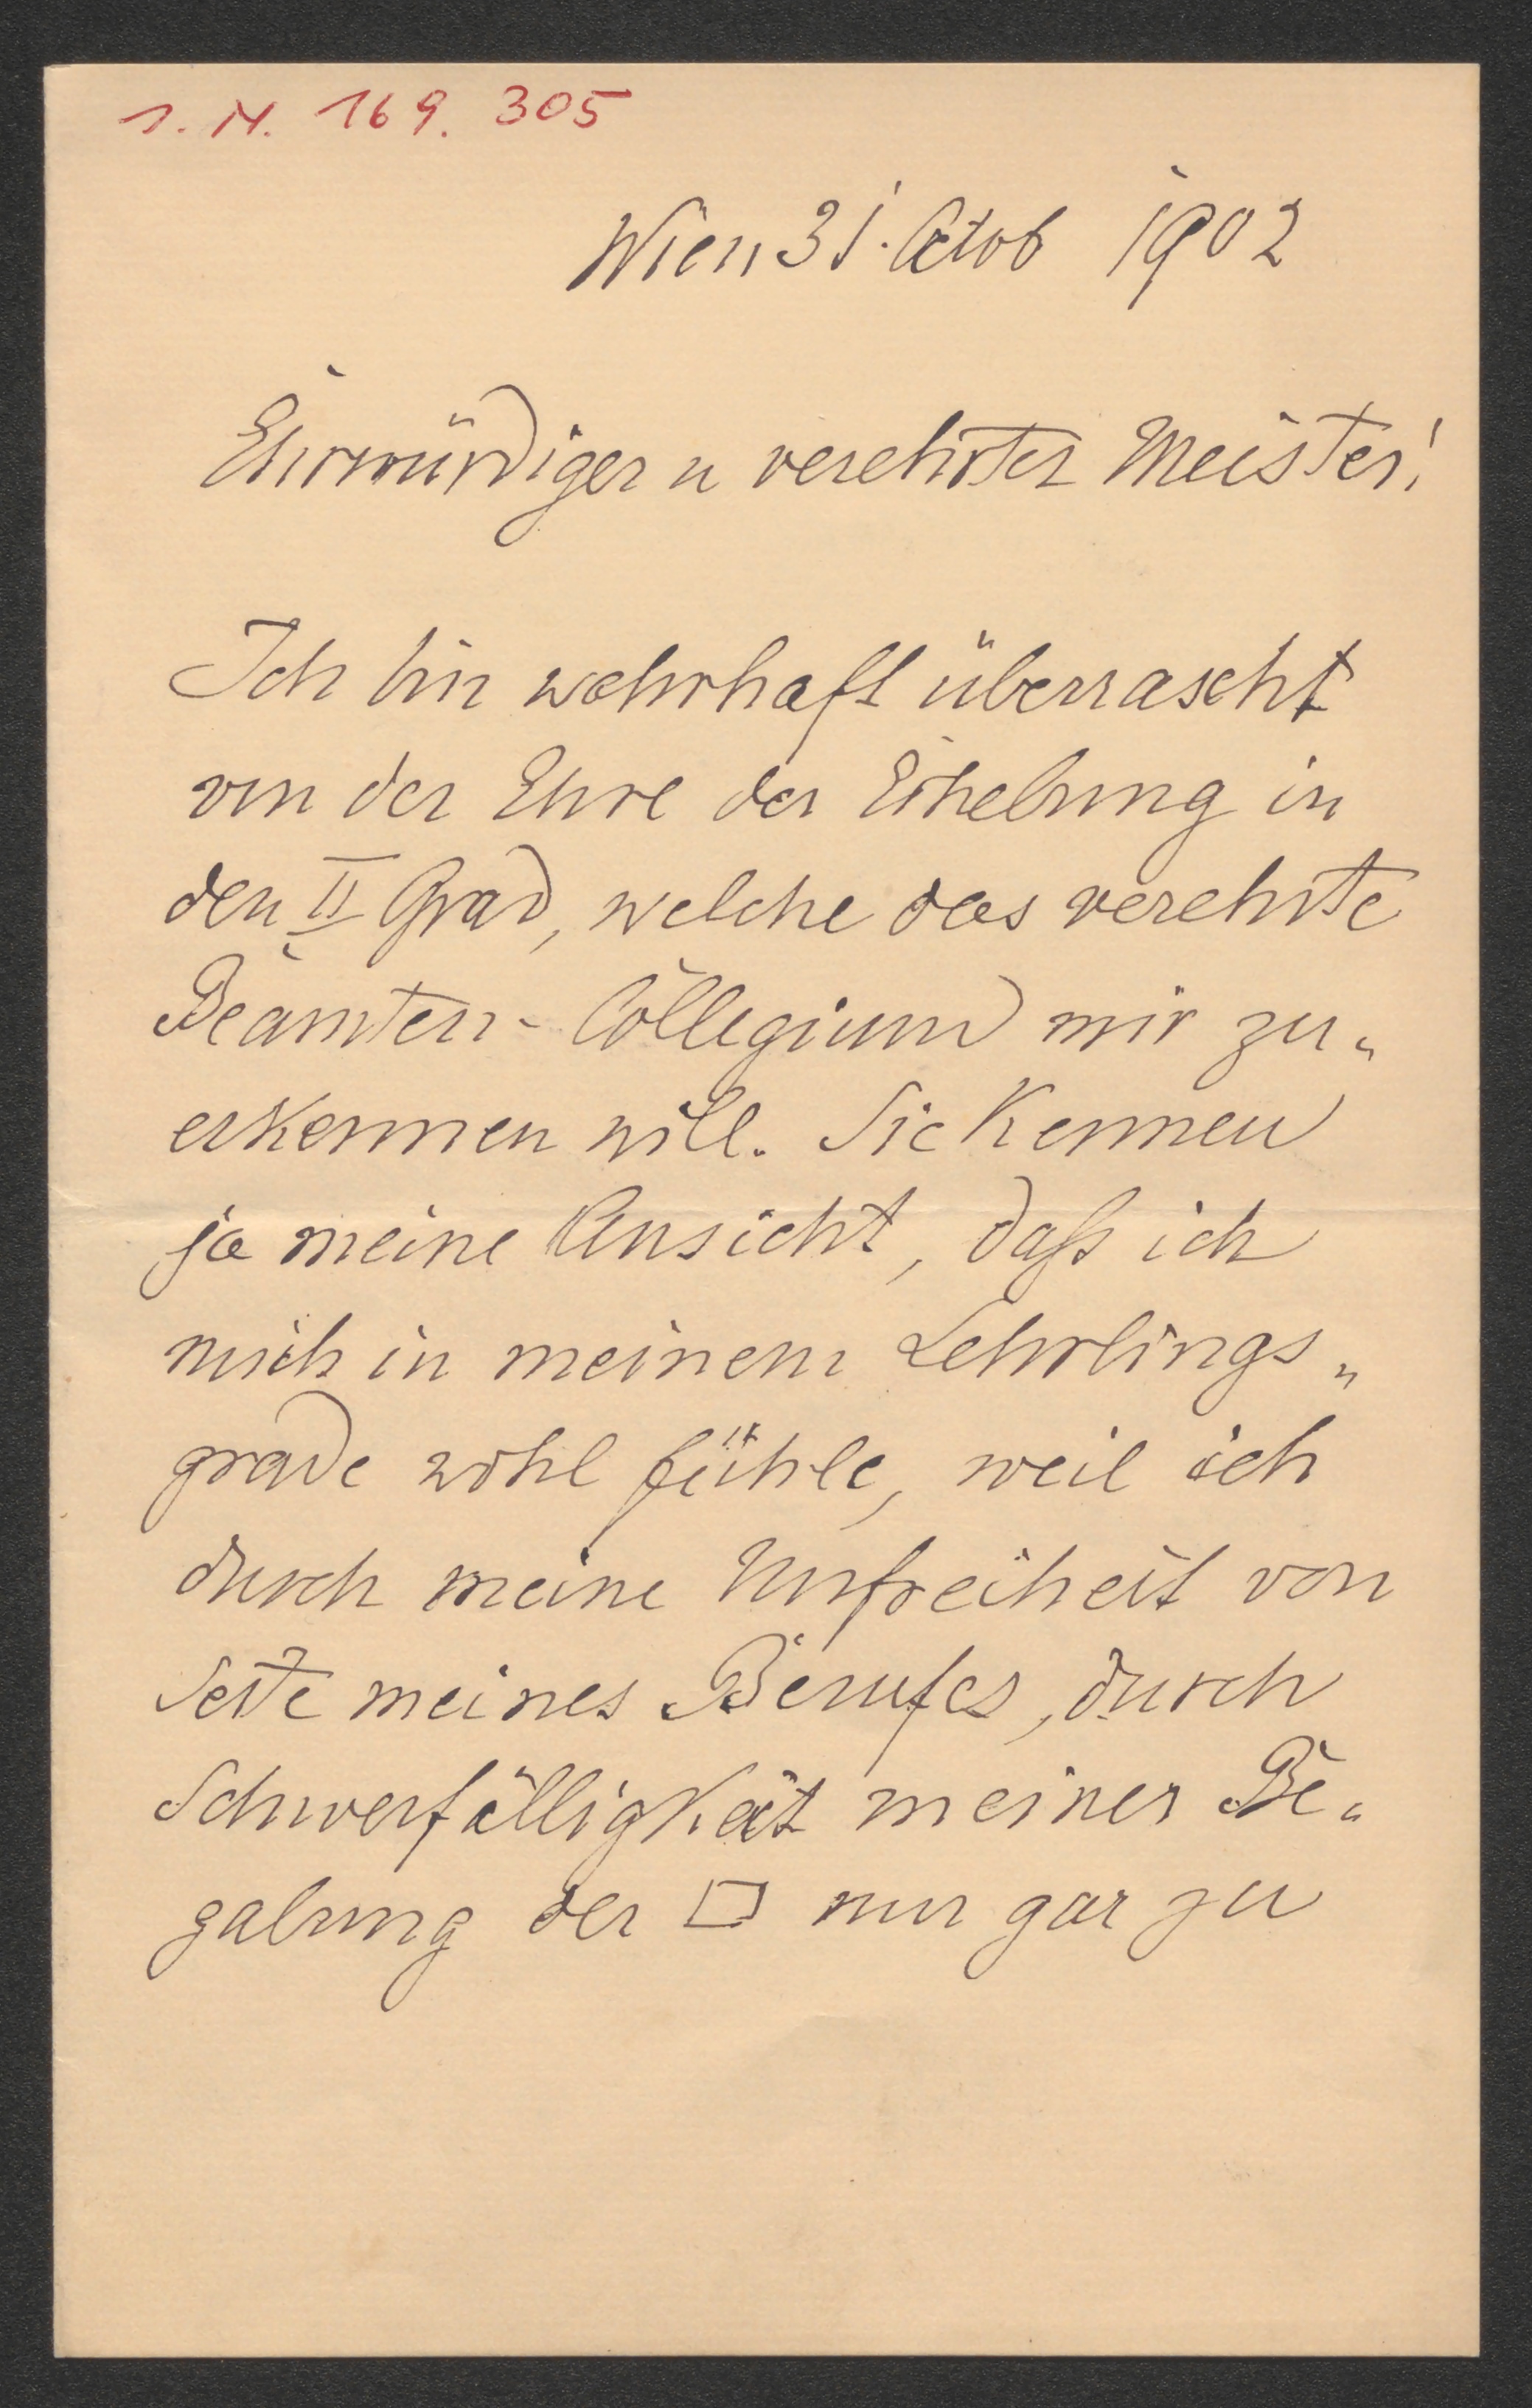 I. N. 169. 305
Wien, 31. Octob 1902
Ehrwürdiger u verehrter Meister!
Ich bin wahrhaft überrascht
von der Ehre der Erhebung in
den II Grad, welche das verehrte
Beamten-Collegium mir zu„
erkennen will. Sie kennen
ja meine Ansicht, daß ich
mich in meinem Lehrlings„
grade wohl fühle, weil ich
durch meine Unfreiheit von
Seite meines Berufes, durch
Schwerfälligkeit meiner Be„
gabung der □ nur gar zu